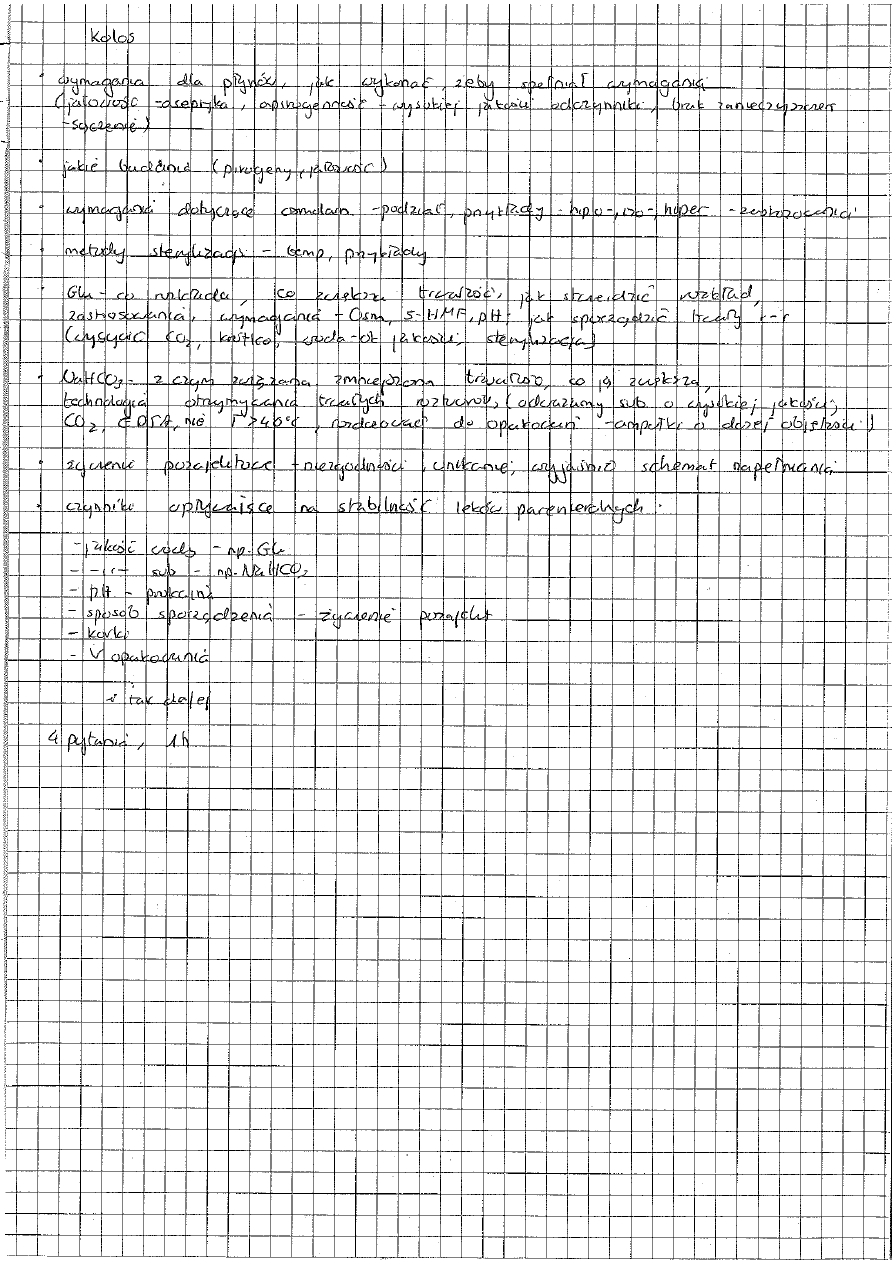 Kolos
• wymagania dla płynów, jak wykonać, żeby spełniał wymagania
(jałowość - aseptyka, apirogenność - wysokiej jakości odczynniki, brak zanieczyszczeń
- sączenie)
• jakie badania (pirogeny, jałowość)
• wymagania dotyczące osmolarn - podział, przykłady - hipo-, izo-, hiper -
• metody sterylizacji - temp, przykłady
• Glu - co rozkłada, co zwiększa trwałość, jak stwierdzić rozkład,
zastosowania, wymagania - Osm, 5-HMF, pH, jak sporządzić trwały r-r
(wysycić CO2, krótko, woda - ok jakości, sterylizacja)
• NaHCO3 - z czym związana zmniejszona trwałość, co ją zwiększa,
technologia otrzymywania trwałych roztworów, (odważamy sub o wysokiej jakości,
CO2, EDTA, nie T > 40°C, rozlewać do opakowań - ampułki o dużej objętości)
• żywienie pozajelitowe - niezgodności, unikanie, wyjaśnić schemat napełniania
• czynniki wpływające na stabilność leków parenteralnych.
- jakość wody - np. Glu
- -11- sub - np. NaHCO3
- pH - prokaina
- sposób sporządzenia - żywienie pozajelit
- korki
- V opakowania
i tak dalej
4 pytania, 1h